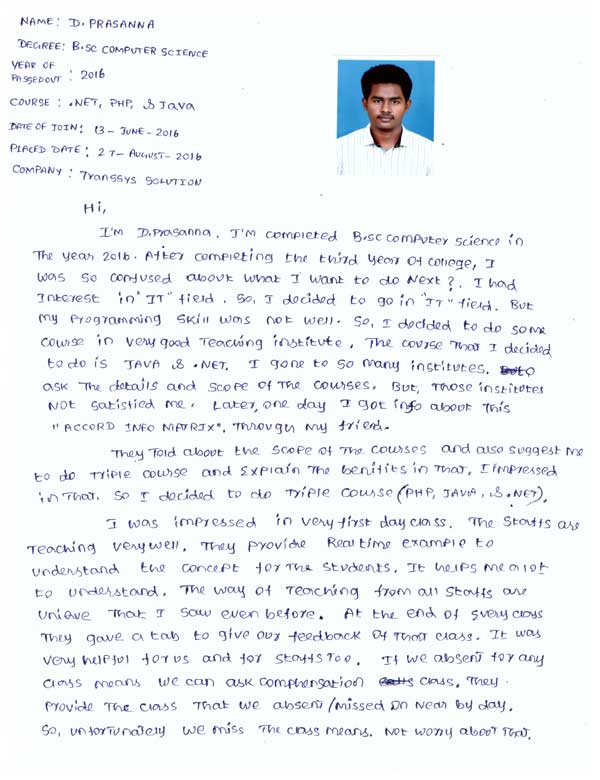 NAME: D. PRASANNA
DEGREE: B.SC COMPUTER SCIENCE
YEAR OF
PASSEDOUT : 2016
COURSE : .NET, PHP, & Java
DATE OF JOIN: 13 - JUNE - 2016
PLACED DATE : 27 - AUGUST - 2016
COMPANY : Transsys Solution
Hi,
I'M D.Prasanna. I'M completed B.SC computer science in
The year 2016. After completing the third year of college, I
was so confused about what I want to do Next?. I had
Interest in "IT" field. So, I decided to go in "IT" field. But
my Programming skill was not well. So, I decided to do some
course in very good Teaching institute. The course That I decided
to do is JAVA & .NET. I gone to so many institutes.
ask The details and scope of The courses. But, Those institutes
NOT satisfied me. Later, one day I got info about This
"ACCORD INFO MATRIX", Through my friend.
They Told about the scope of The courses and also suggest me
to do Triple course and Explain The benifits in That, I impressed
in That. So I decided to do Triple course (PHP, JAVA, & .NET).
I was impressed in very first day class. The Staffs are
Teaching very well, They provide Real time example to
understand the concept for The students. It helps me a lot
to understand. The way of Teaching from all Staffs are
Unique That I saw even before. At the end of every class
They gave a tab to give our feedback of That class. It was
very helpful for us and for staffs Too. If we absent for any
class means we can ask comphensation class. They
Provide The class That we absent/missed on Near by day.
So, unfortunately we miss The class means. Not worry about That.